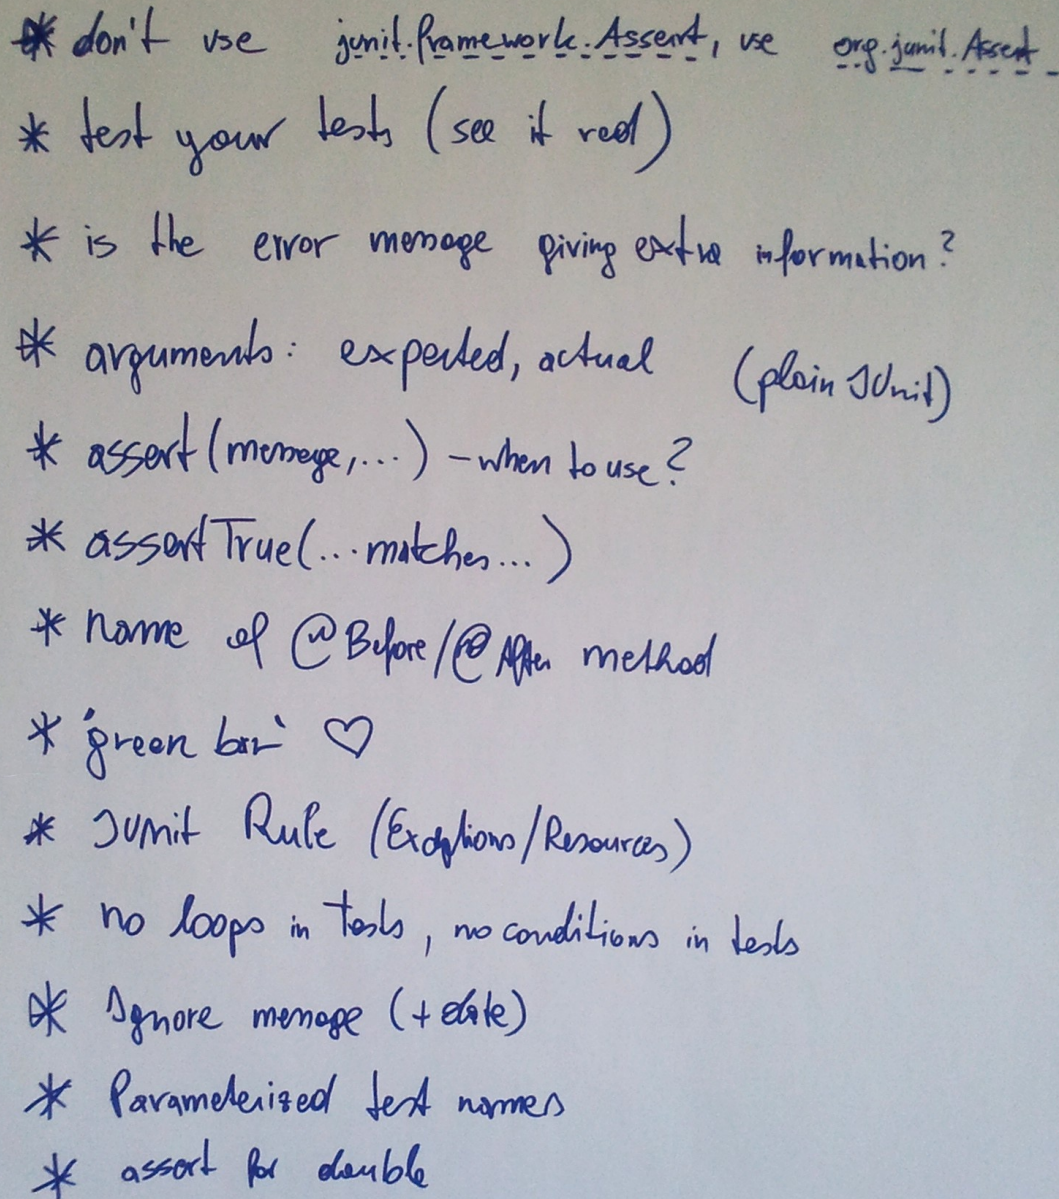 * don't use junit.framework.Assert, use org.junit.Assert
* test your tests (see it red)
* is the error message giving extra information?
* arguments: expected, actual (plain JUnit)
* assert(message,...) - when to use?
* assertTrue(...matches...)
* name of @Before/@After method
* 'green bar' ♡
* JUnit Rule (Exceptions/Resources)
* no loops in tests, no conditions in tests
* Ignore message (+ date)
* Parameterized test names
* assert for double